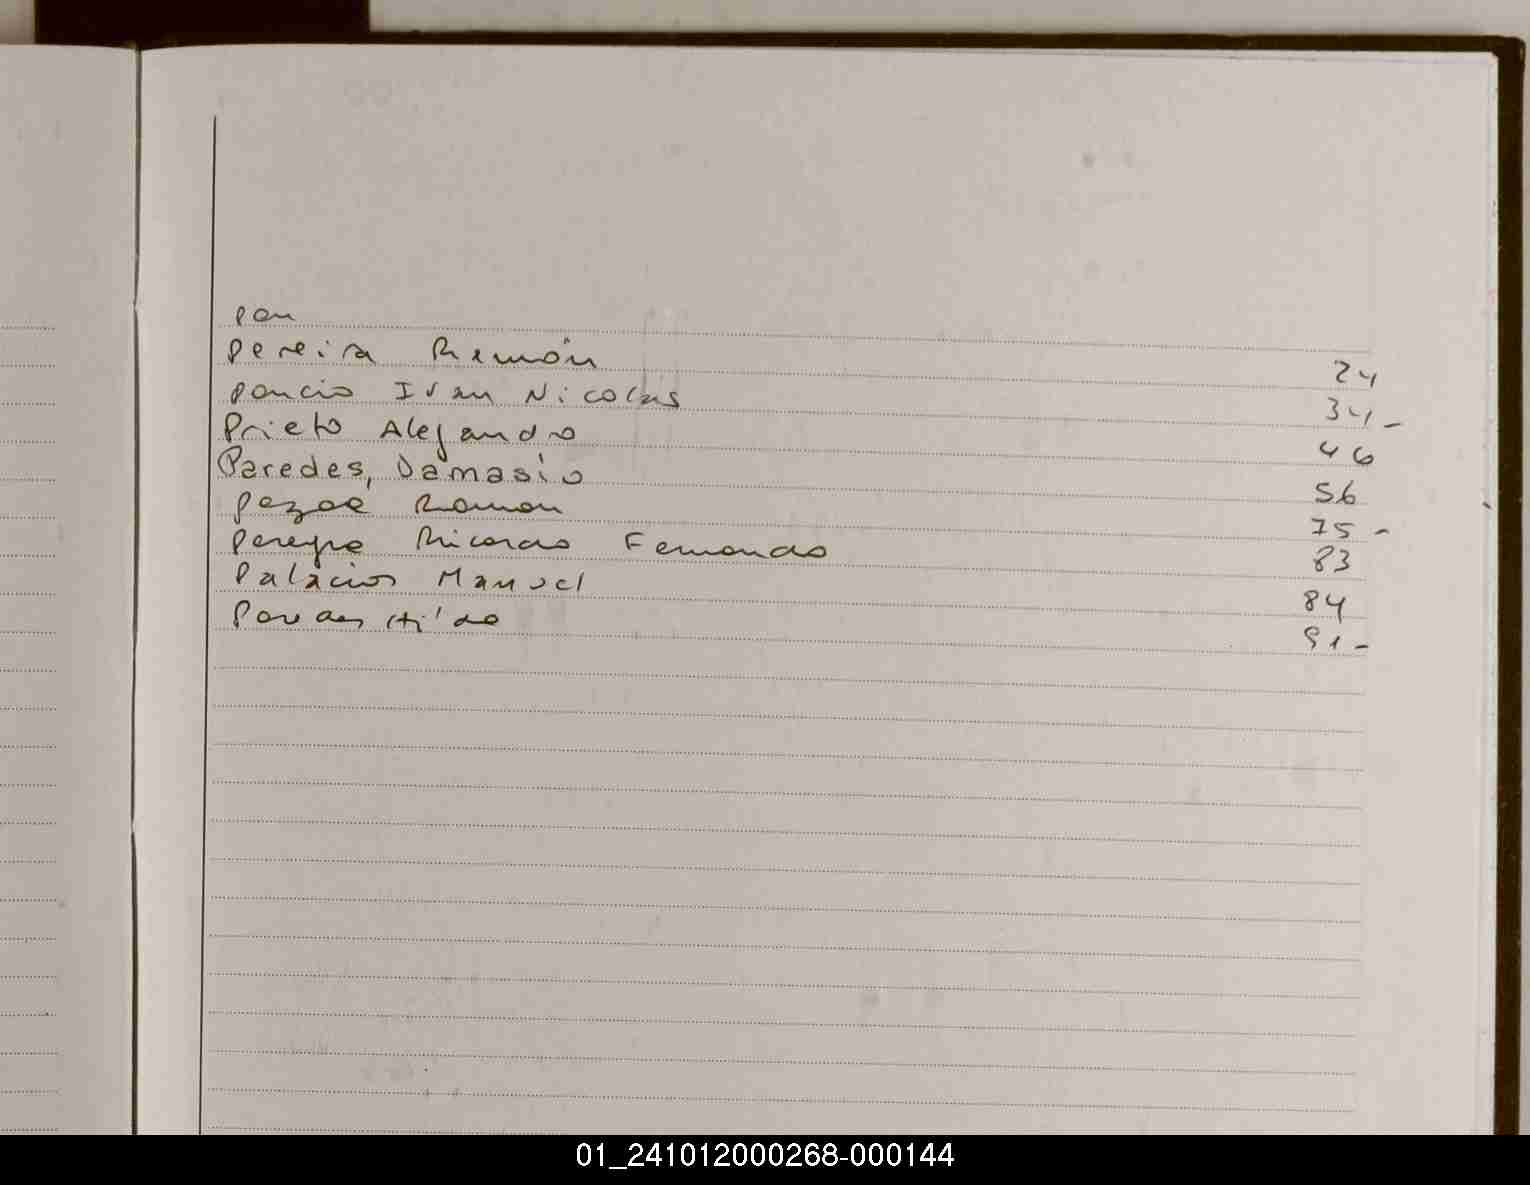 Pon
Pereira Ramón 24
Poncio Ivan Nicolas 34-
Prieto Alejandro 46
Paredes, Damasio 56
Ramon 75-
Pereyra Ricardo Fernando 83
Palacios Manuel 84
Paredes 91-
01_241012000268-000144